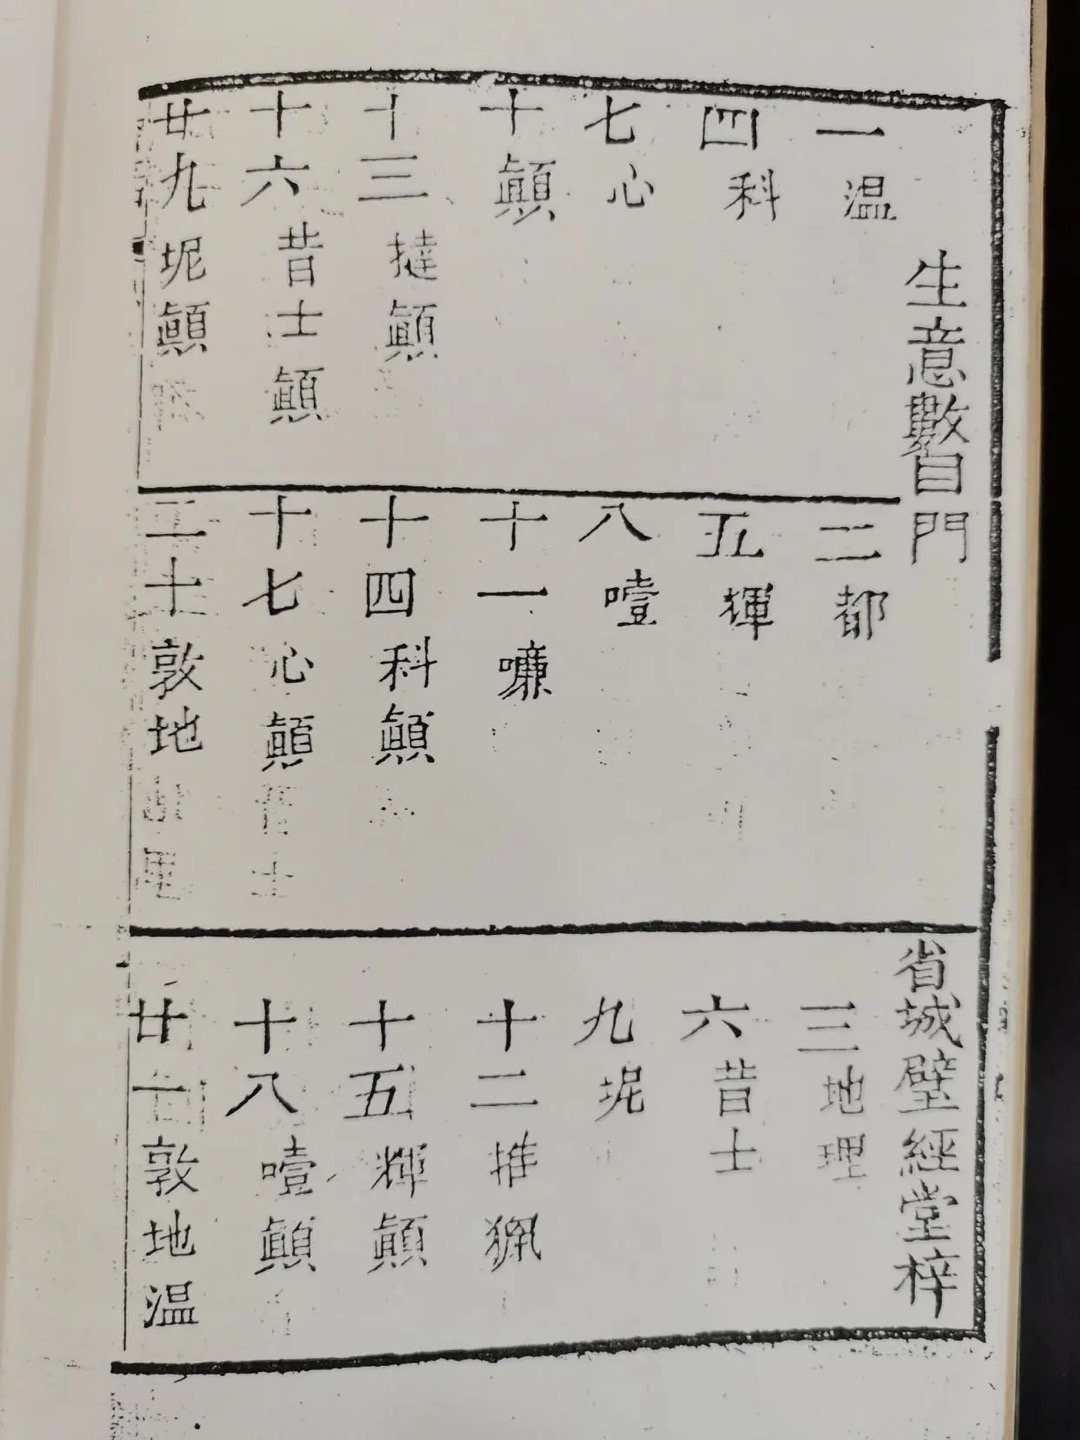 生意數目門
省城璧經堂梓
一温
二都
三地理
四科
五輝
六昔士
七心
八噎
九坭
十顛
十一
十二推
十三撻顛
十四科顛
十五輝顛
十六昔士顛
十七心顛
十八噎顛
廿九坭顛
二十敦地
廿一敦地温